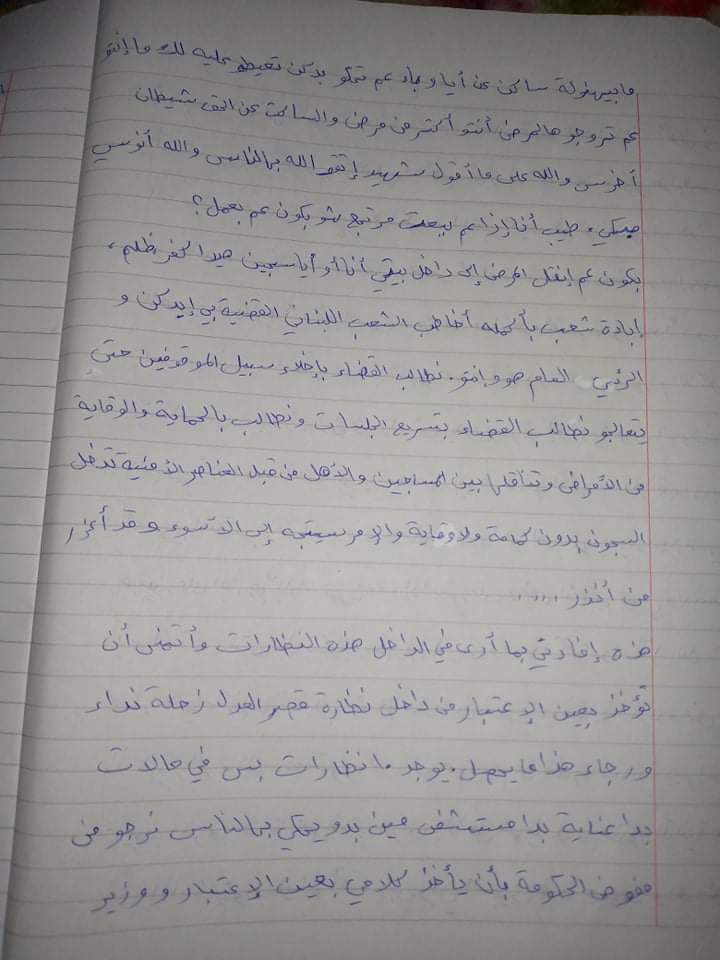 ما بيهنولة ساكن عن أيا وباء عم تحكو بدكن تعيطو عليه لك ما إنتو
عم تروجو هالمرض أنتو أكتر من مرض والساكت عن الحق شيطان
أخرس والله على ما أقول شهيد إتقو الله بهالناس والله أنو سي
طيب أنا إذا عم ببعت مرتجع شو بكون عم بعمل؟
بكون عم إنقل المرض إلى داخل بيتي أنا أو أيا سجين هيدا كفر ظلم،
إبادة شعب بأكمله أخاطب الشعب اللبناني القضية بي إيدكن و
الرئيس العام هو وإنتو. نطالب القضاء بإخلاء سبيل الموقوفين حتى
يتعالجو نطالب القضاء بتسريع الجلسات ونطالب بالحماية والوقاية
من الأمراض وتناقلها بين المساجين والأهل من قبل العناصر الأمنية تدخل
السجون بدون كمامة ولا وقاية والأمر سيتجه إلى الأسوء وقد أعزر
من أنذر ....
هذه إفادتي بما أرى في الداخل هذه النظارات وأتمنى أن
تؤخذ بعين الإعتبار من داخل نظارة قصر العدل زحلة نداء
ورجاء هذا ما يحصل. يوجد ١٠ نظارات بس في حالات
بدا عناية بدا مستشفى مين بدو يحكي بهالناس نرجو من
مفوض الحكومة بأن يأخذ كلامي بعين الإعتبار ووزير